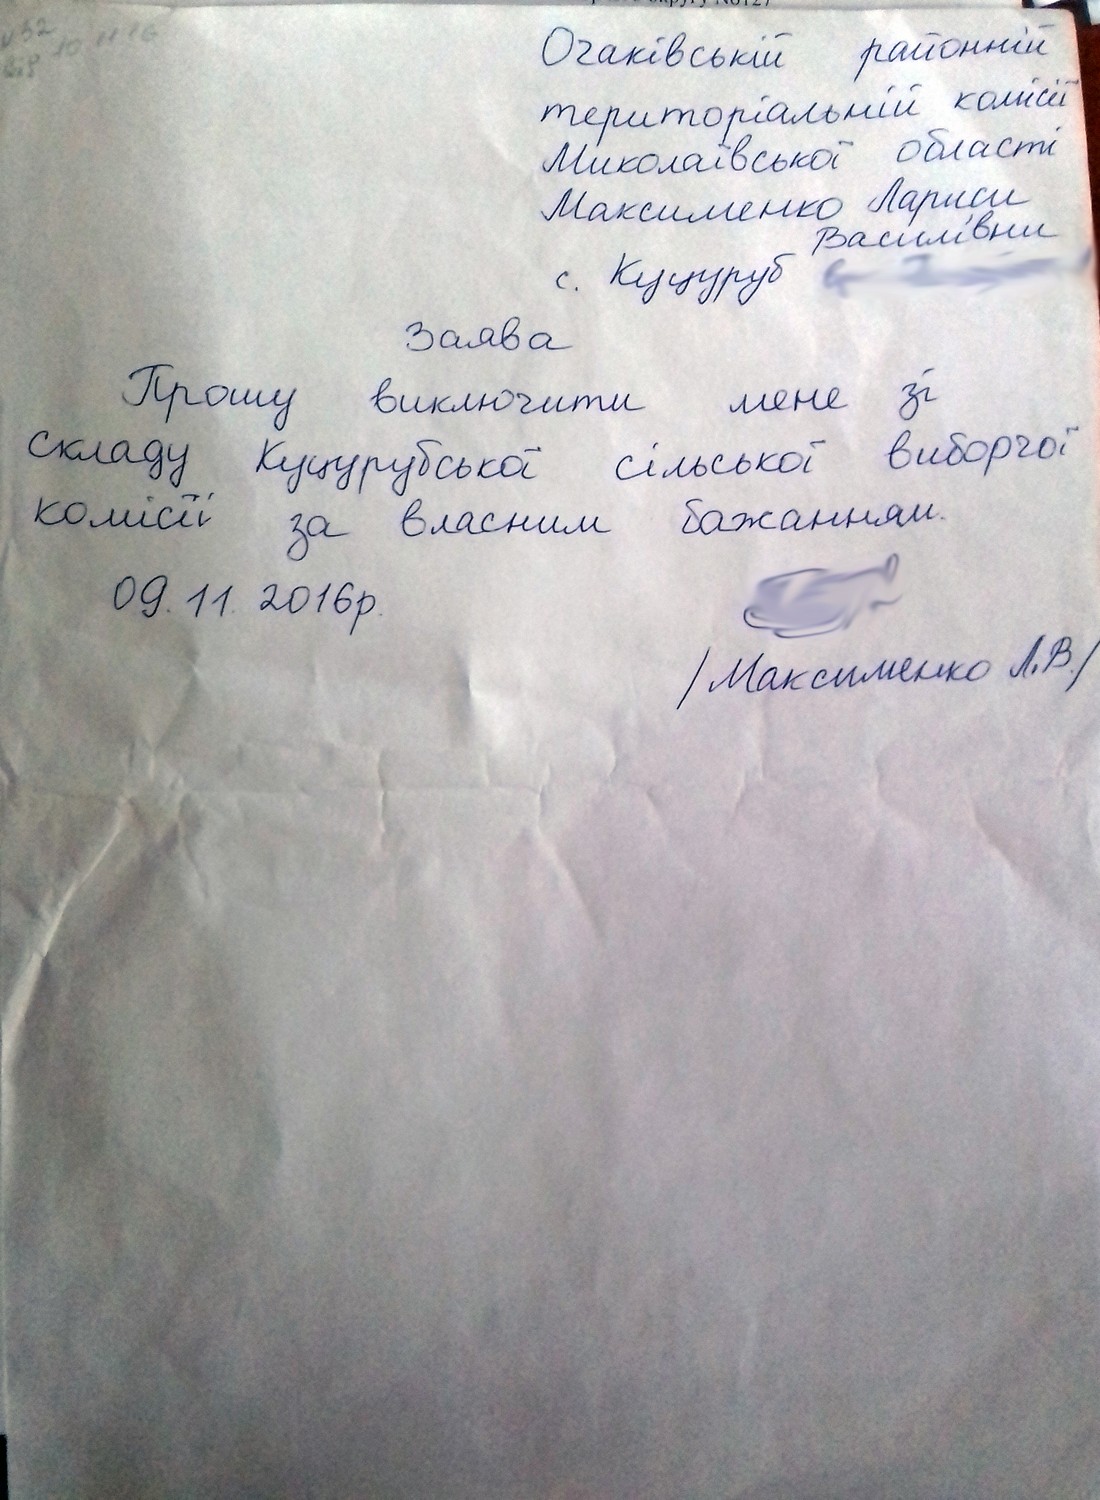 округу №127
№ 32
від 10.11.16
Очаківській районній
територіальній комісії
Миколаївської області
Максименко Лариси
Василівни
с. Куцуруб
Заява
Прошу виключити мене зі
складу Куцурубської сільської виборчої
комісії за власним бажанням.
09.11.2016р.
/Максименко Л.В./